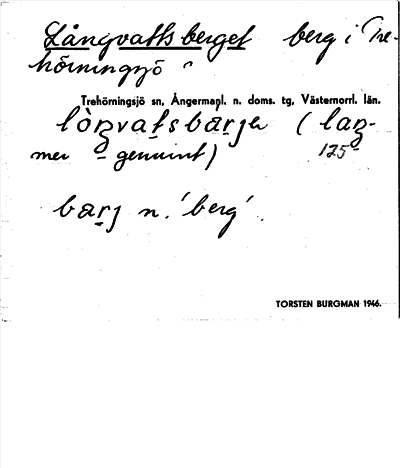 Långvattsberget berg i Tre-
hörningsjö
Trehörningsjö sn, Ångermanl. n. doms. tg, Västernorrl. län.
lòŋvatsbarjə (laŋ-
mer genuint) 125
barj n. 'berg'.
TORSTEN BURGMAN 1946.